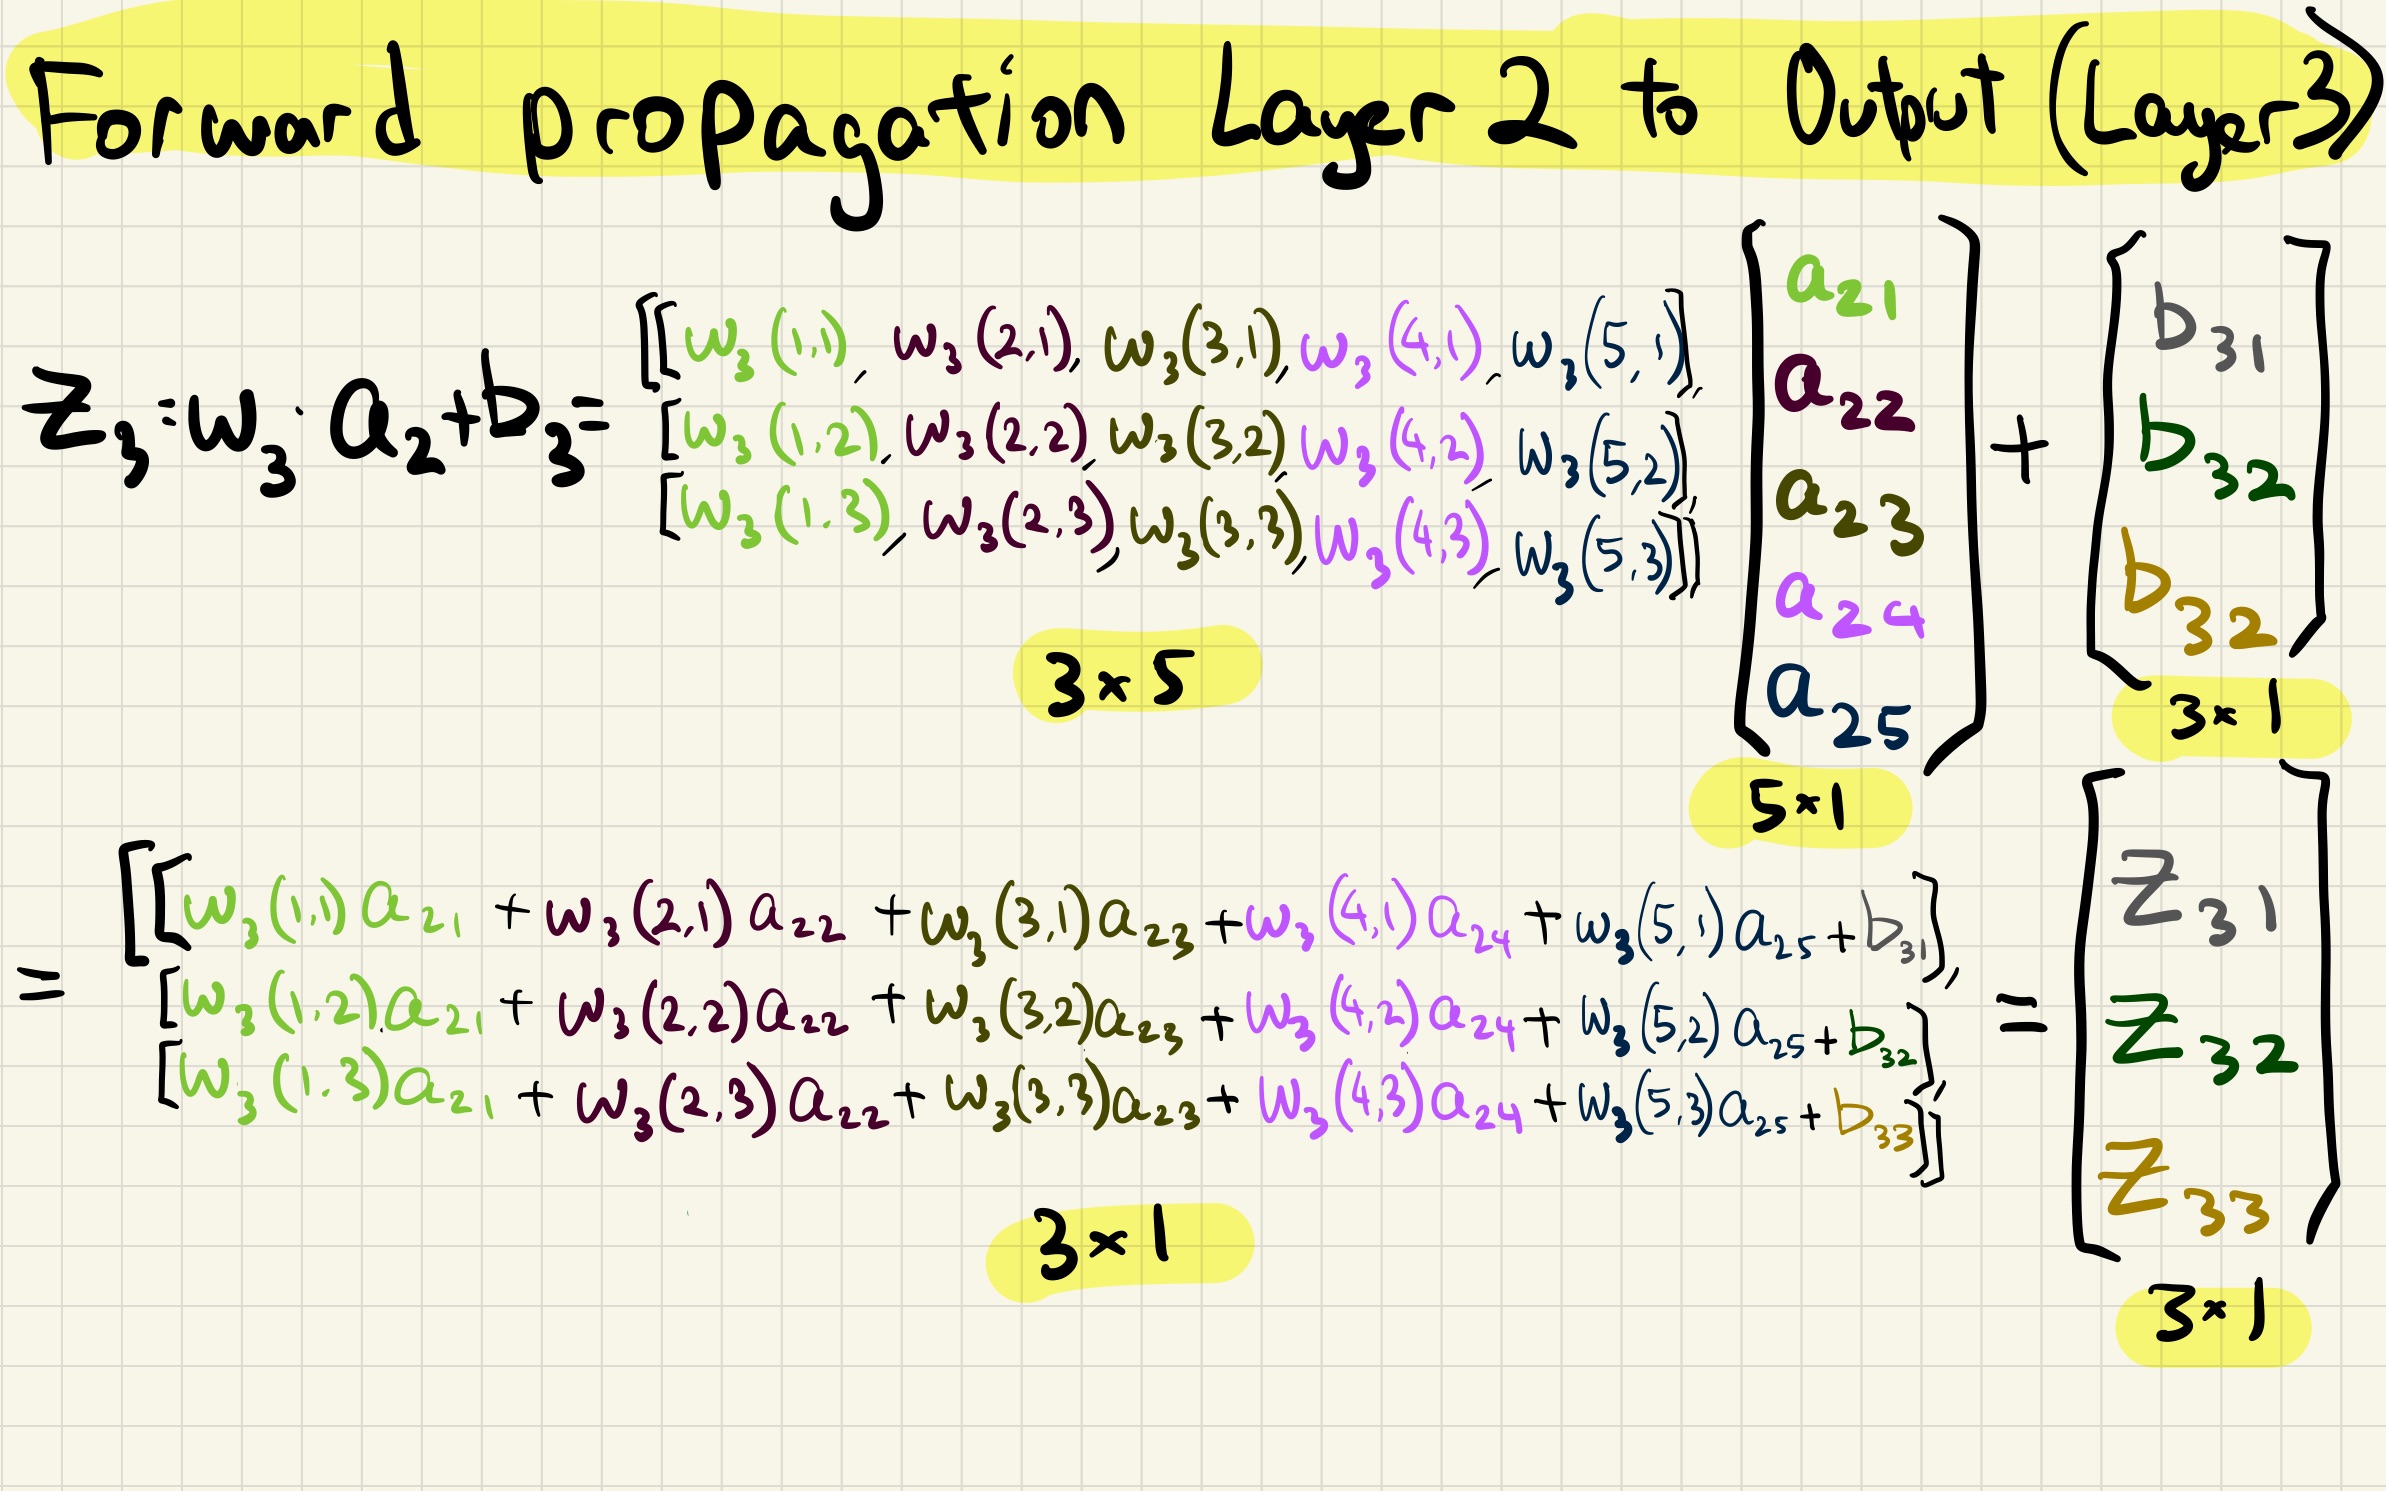 Forward propagation Layer 2 to Output (Layer 3)
Z₃=W₃·a₂+b₃=
[[W₃(1,1), W₃(2,1), W₃(3,1), W₃(4,1), W₃(5,1)],
[W₃(1,2), W₃(2,2), W₃(3,2), W₃(4,2), W₃(5,2)],
[W₃(1.3), W₃(2,3), W₃(3,3), W₃(4,3), W₃(5,3)]]
3×5
a₂₁
a₂₂
a₂₃
a₂₄
a₂₅
5×1
+
b₃₁
b₃₂
b₃₂
3×1
=
[[W₃(1,1)a₂₁ + W₃(2,1)a₂₂ + W₃(3,1)a₂₃ + W₃(4,1)a₂₄ + W₃(5,1)a₂₅ + b₃₁],
[W₃(1,2)a₂₁ + W₃(2,2)a₂₂ + W₃(3,2)a₂₃ + W₃(4,2)a₂₄ + W₃(5,2)a₂₅ + b₃₂],
[W₃(1.3)a₂₁ + W₃(2,3)a₂₂ + W₃(3,3)a₂₃ + W₃(4,3)a₂₄ + W₃(5,3)a₂₅ + b₃₃]]
3×1
=
Z₃₁
Z₃₂
Z₃₃
3×1